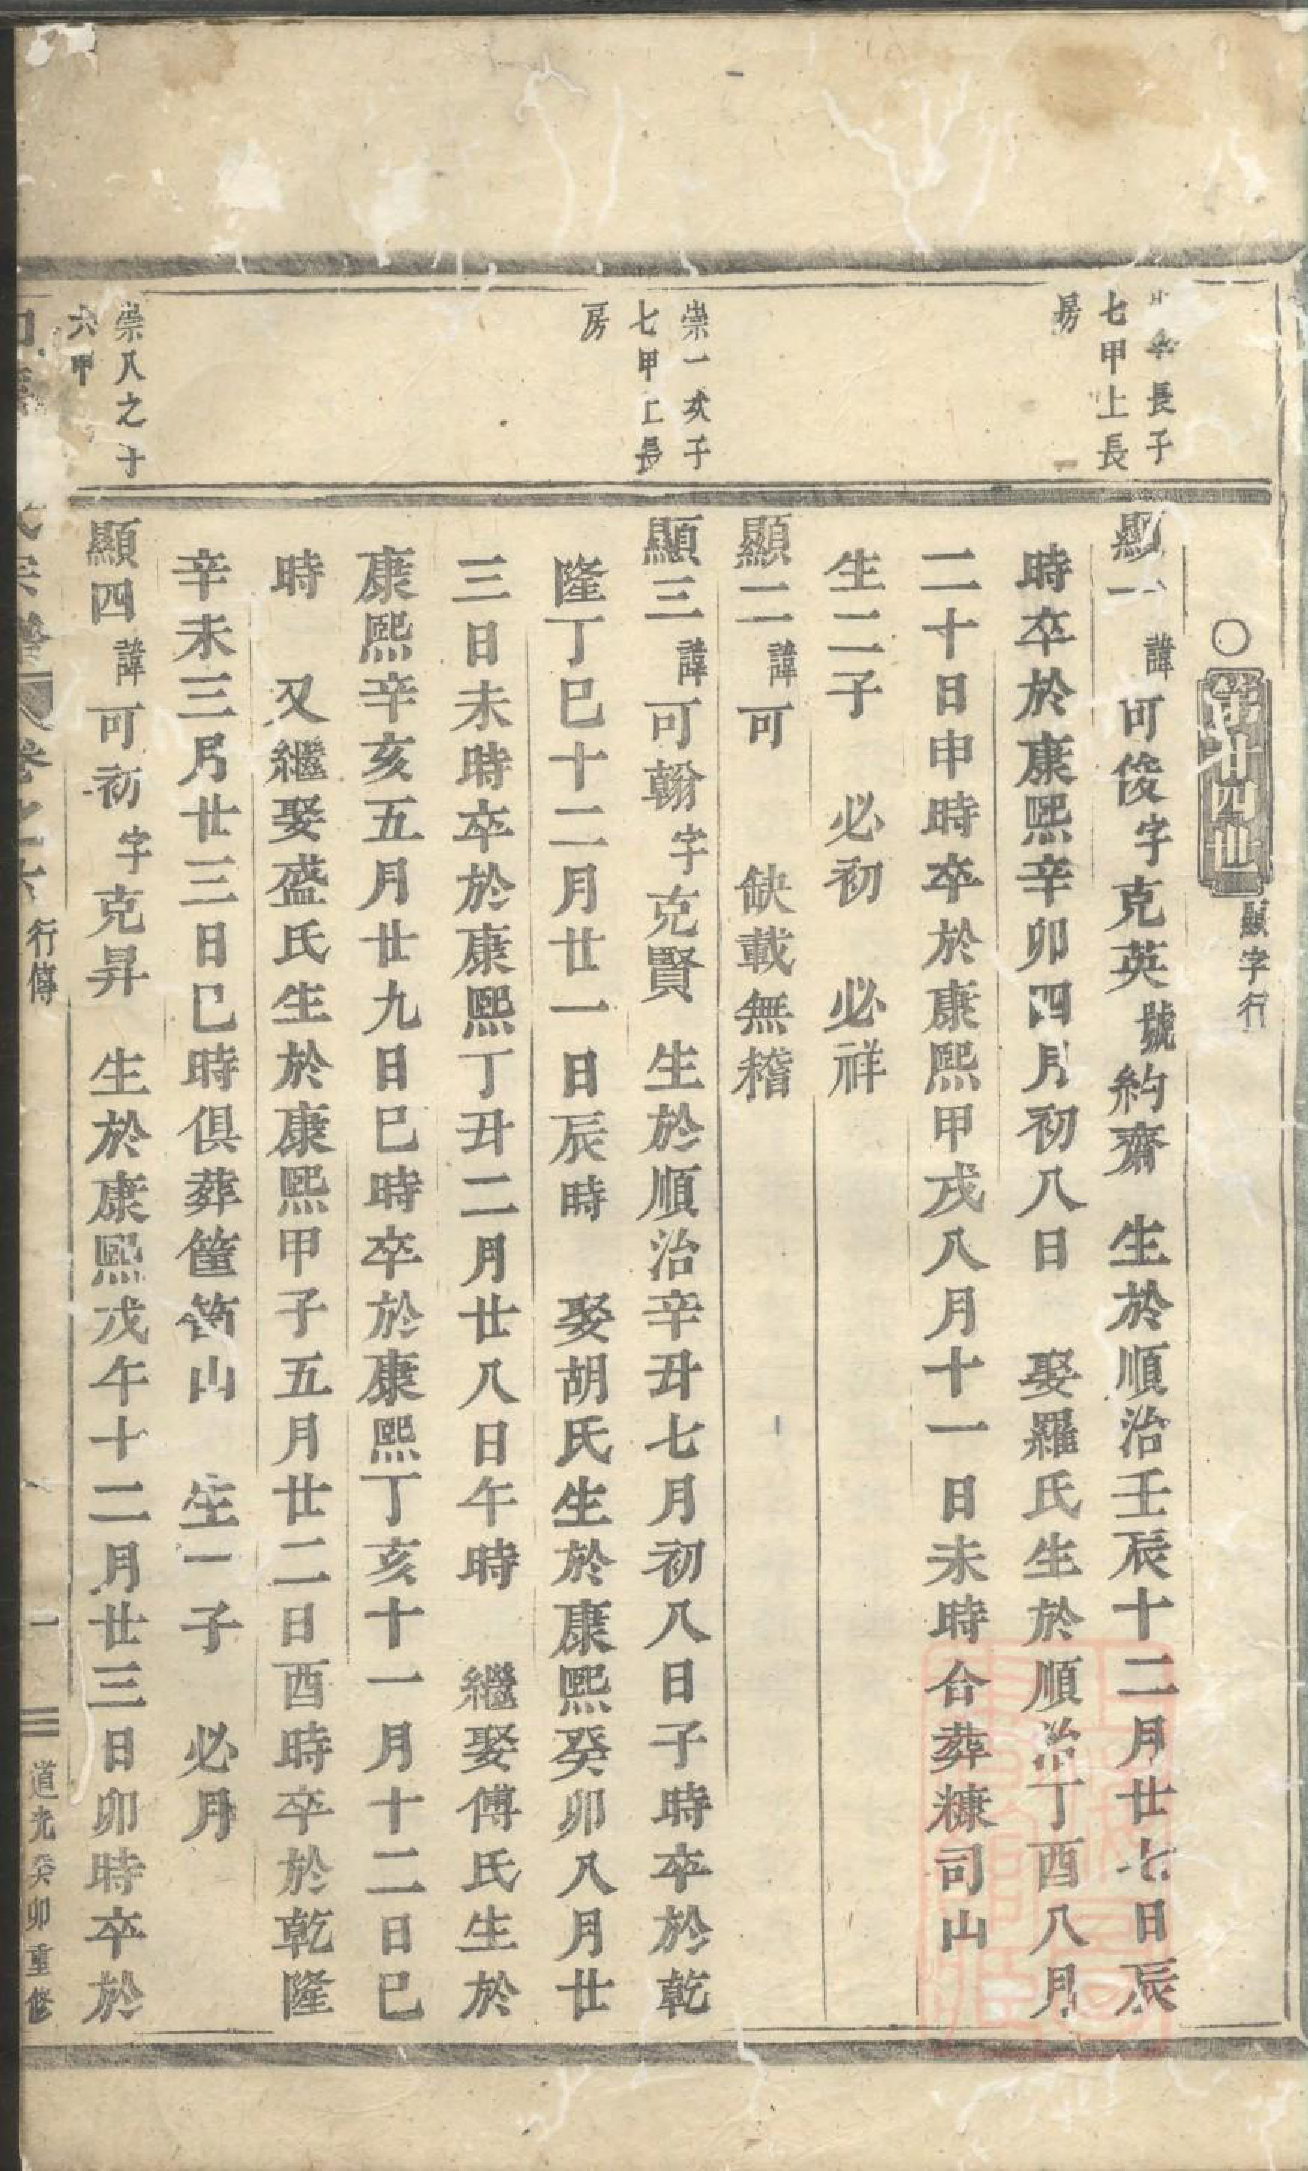 ○第廿四世 顯字行
長子
七甲上長
房
顯一諱可俊字克英號約齋 生於順治壬辰十二月廿七日辰
時卒於康熙辛卯四月初八日 娶羅氏生於順治丁酉八月
二十日申時卒於康熙甲戌八月十一日未時合葬糠司山
生二子 必初 必祥
顯二諱可 缺載無稽
崇一次子
七甲上長
房
顯三諱可翰字克賢 生於順治辛丑七月初八日子時卒於乾
隆丁巳十二月廿一日辰時 娶胡氏生於康熙癸卯八月廿
三日未時卒於康熙丁丑二月廿八日午時 繼娶傅氏生於
康熙辛亥五月廿九日巳時卒於康熙丁亥十一月十二日巳
時 又繼娶盛氏生於康熙甲子五月廿二日酉時卒於乾隆
辛未三月廿三日巳時俱葬筐筜山 生一子 必月
崇八之子
六甲
顯四諱可初字克昇 生於康熙戊午十二月廿三日卯時卒於
氏宗譜 卷之六 行傳 一 道光癸卯重修